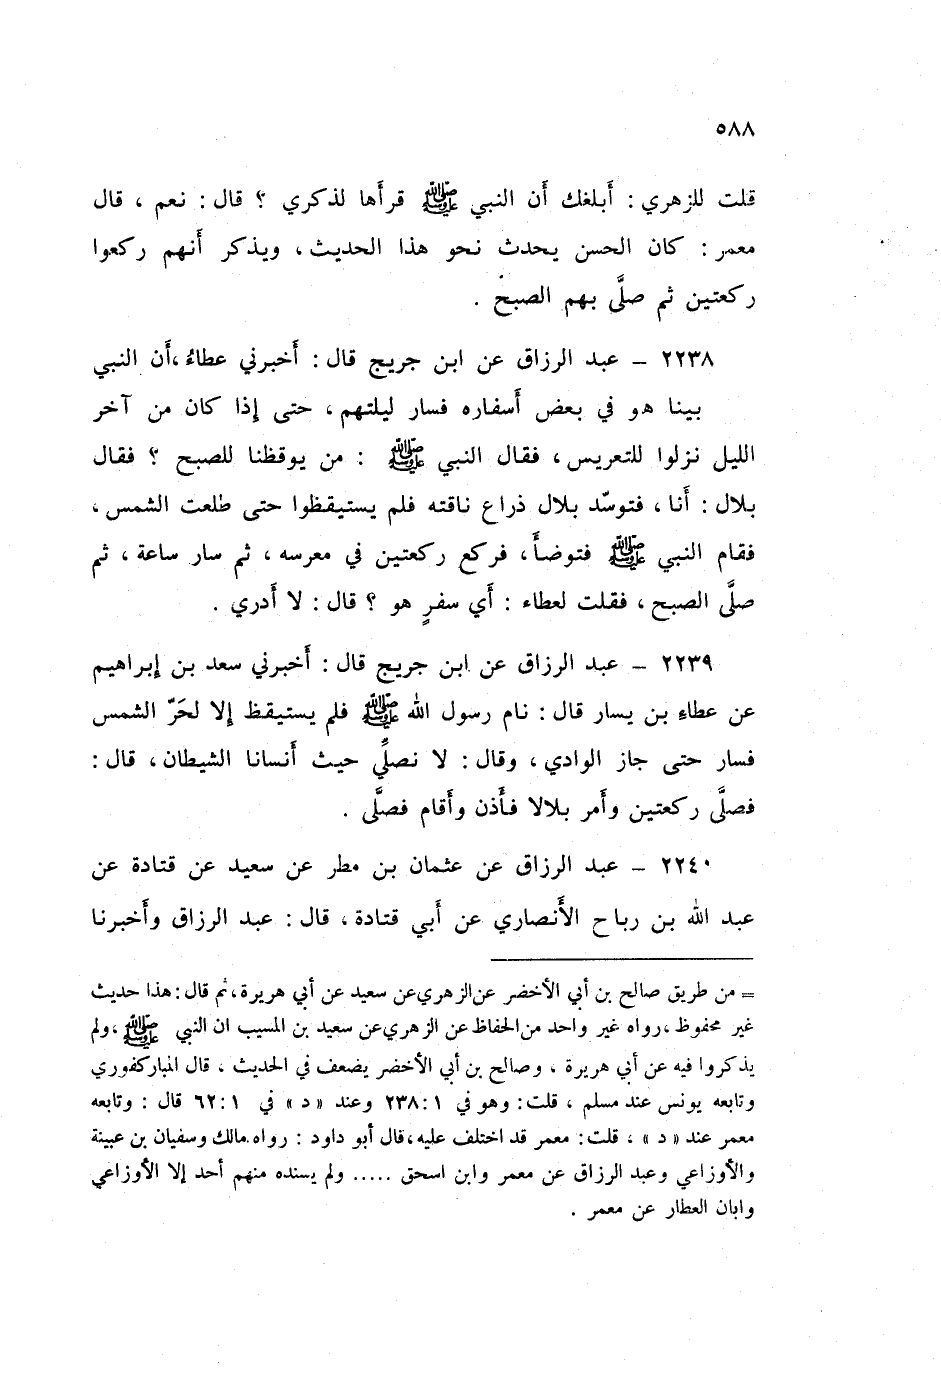 ٥٨٨
قلت للزهري : أَبلغك أَن النبي ﷺ قرأَها لذكري ؟ قال : نعم ، قال
معمر : كان الحسن يحدث نحو هذا الحديث ، ويذكر أَنهم ركعوا
ركعتين ثم صلَّى بهم الصبح .
٢٢٣٨ ــ عبد الرزاق عن ابن جريج قال : أَخبرني عطاءُ ،أَن النبي
بينا هو في بعض أَسفاره فسار ليلتهم ، حتى إِذا كان من آخر
الليل نزلوا للتعريس ، فقال النبي ﷺ : من يوقظنا للصبح ؟ فقال
بلال : أَنا ، فتوسّد بلال ذراع ناقته فلم يستيقظوا حتى طلعت الشمس ،
فقام النبي ﷺ فتوضأَ ، فركع ركعتين في معرسه ، ثم سار ساعة ، ثم
صلَّى الصبح ، فقلت لعطاء : أَي سفرٍ هو ؟ قال : لا أَدري .
٢٢٣٩ ــ عبد الرزاق عن ابن جريج قال : أَخبرني سعد بن إِبراهيم
عن عطاءِ بن يسار قال : نام رسول الله ﷺ فلم يستيقظ إِلا لحَرّ الشمس
فسار حتى جاز الوادي ، وقال : لا نصلِّي حيث أَنسانا الشيطان ، قال :
فصلَّى ركعتين وأَمر بلالا فأَذن وأَقام فصلَّى .
٢٢٤٠ ــ عبد الرزاق عن عثمان بن مطر عن سعيد عن قتادة عن
عبد الله بن رباح الأَنصاري عن أَبي قتادة ، قال : عبد الرزاق وأَخبرنا
= من طريق صالح بن أبي الأخضر عن الزهري عن سعيد عن أبي هريرة، ثم قال : هذا حديث
غير محفوظ ، رواه غير واحد من الحفاظ عن الزهري عن سعيد بن المسيب ان النبي ﷺ ، ولم
يذكروا فيه عن أبي هريرة ، وصالح بن أبي الأخضر يضعف في الحديث ، قال المباركفوري
وتابعه يونس عند مسلم ، قلت : وهو في ١ : ٢٣٨ وعند « د » في ١ : ٦٢ قال : وتابعه
معمر عند « د » ، قلت : معمر قد اختلف عليه ، قال أبو داود : رواه مالك وسفيان بن عيينة
والأوزاعي وعبد الرزاق عن معمر وابن اسحق ..... ولم يسنده منهم أحد إلا الأوزاعي
وابان العطار عن معمر .